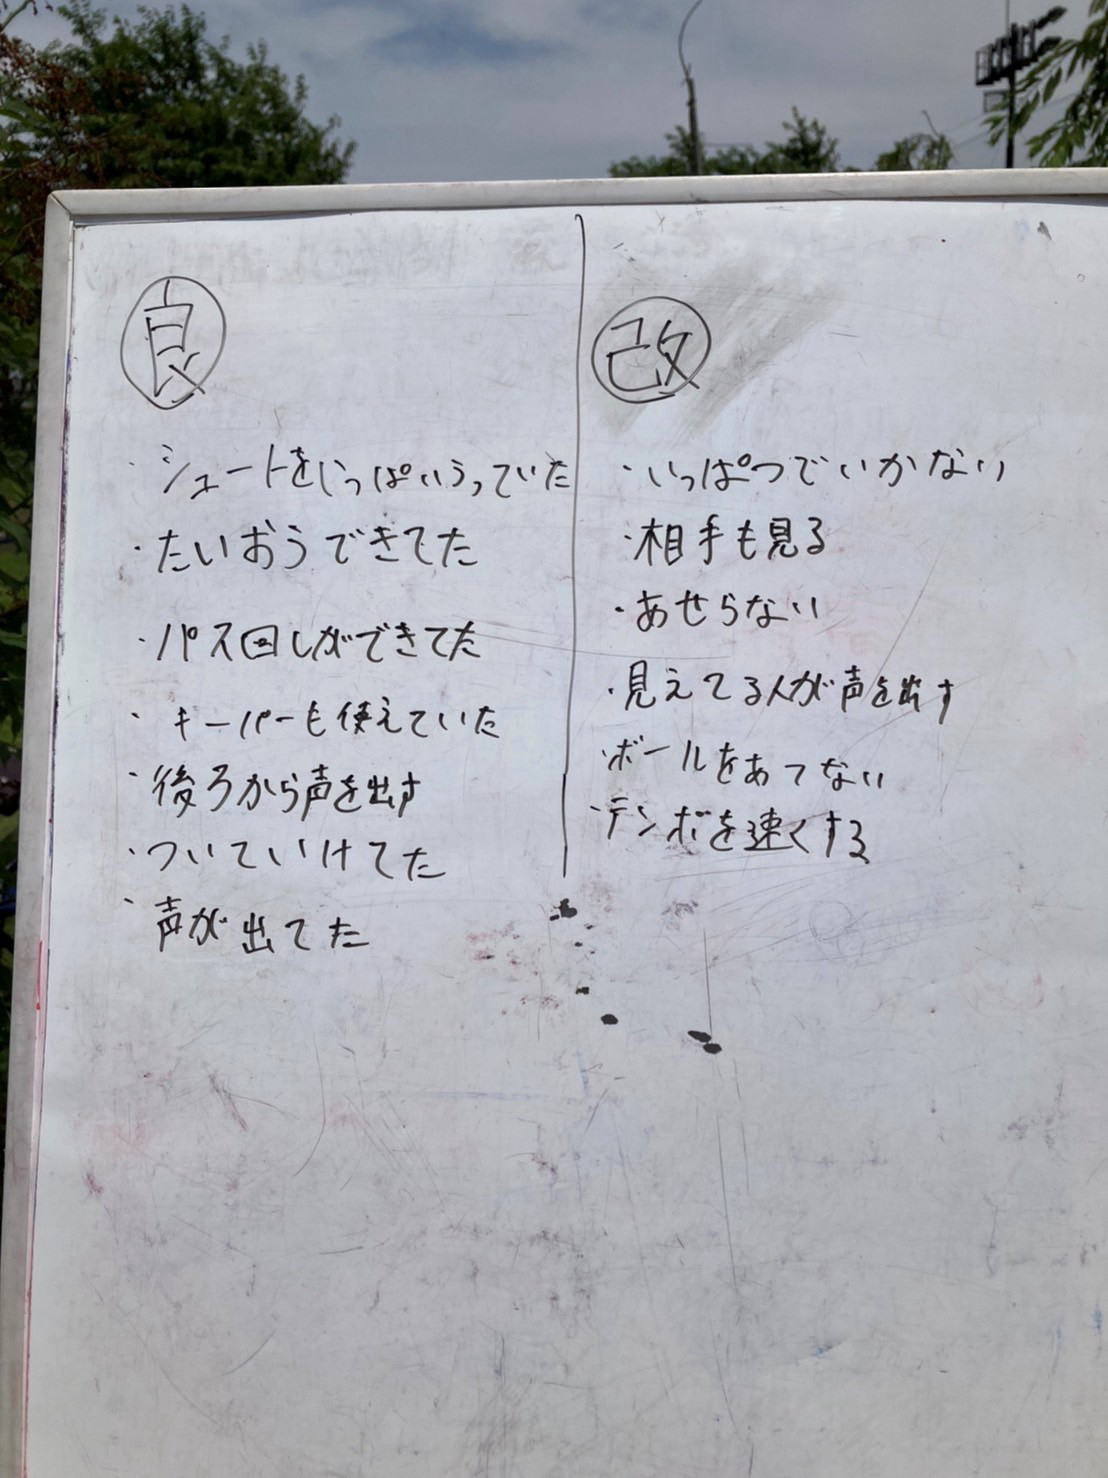 良
・シュートをいっぱいうっていた
・たいおうできてた
・パス回しができてた
・キーパーも使えていた
・後ろから声を出す
・ついていけてた
・声が出てた
改
・いっぱつでいかない
・相手も見る
・あせらない
・見えてる人が声を出す
・ボールをあてない
・テンポを速くする